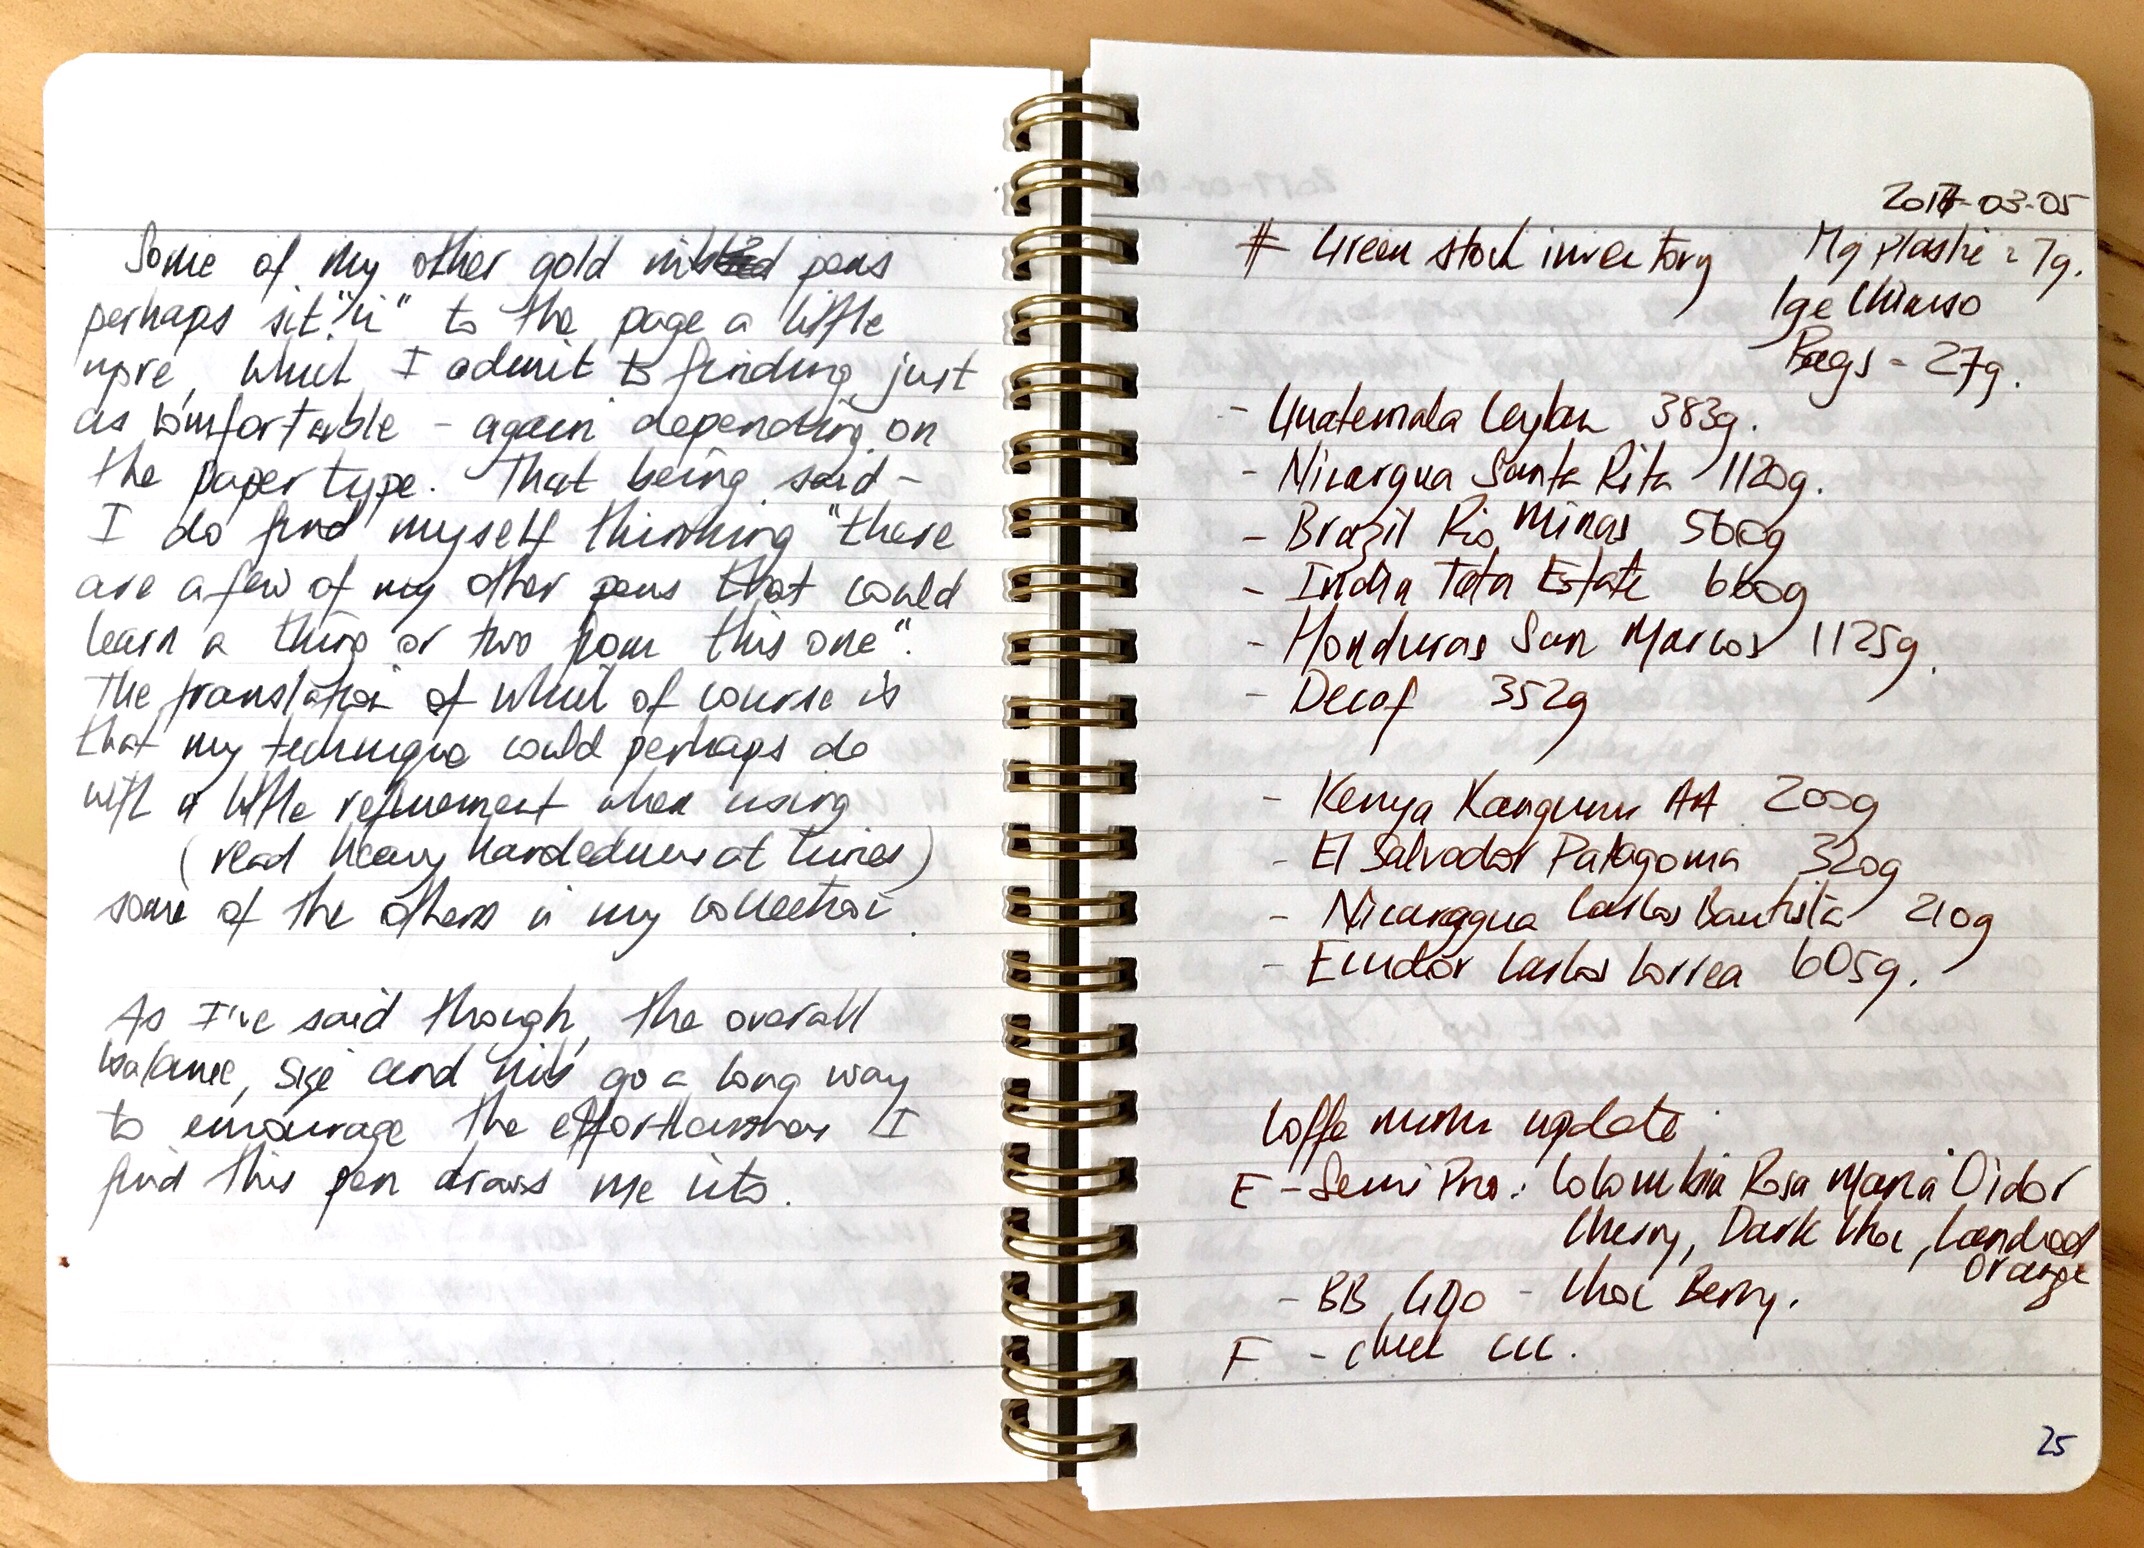 Some of my other gold nib pens
perhaps sit "in" to the page a little
more, which I admit to finding just
as comfortable - again depending on
the paper type. That being said -
I do find myself thinking "there
are a few of my other pens that could
learn a thing or two from this one".
The translation of which of course is
that my technique could perhaps do
with a little refinement when using
(read heavy handedness at times)
some of the others in my collection.
As I've said though, the overall
balance, size and nib go a long way
to encourage the effortlessness I
find this pen draws me into.
2017-03-05
# Green stock inventory
Mg Plastic = 7g.
lge
Bags - 27g.
- Guatemala 383g.
- Nicargua Santa Rita 1120g.
- Brazil Rio Minas 560g
- India Tata Estate 660g
- Honduras San Marcos 1125g.
- Decaf 352g
- Kenya AA 200g
- El Salvador Patagonia 320g
- Nicaraggua Carlos Bautista 210g
- Carlos Correa 605g.
update
E - Semi Pro: Colombia Rosa Maria Oidor
Cherry, Dark Choc,
Orange
- BB - Choc Berry.
F - CCC.
25